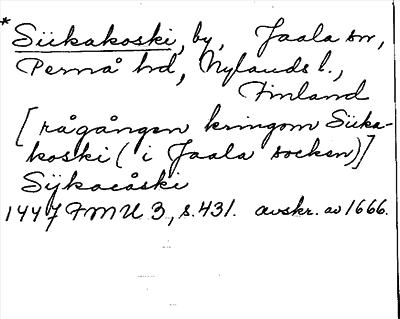 *Siikakoski, by, Jaala sn,
Pernå hd, Nylands l.,
Finland
[rågången kringom Siika-
koski (i Jaala socken)]
Sijkacåski
1447 FMU 3, s. 431. avskr. av 1666.